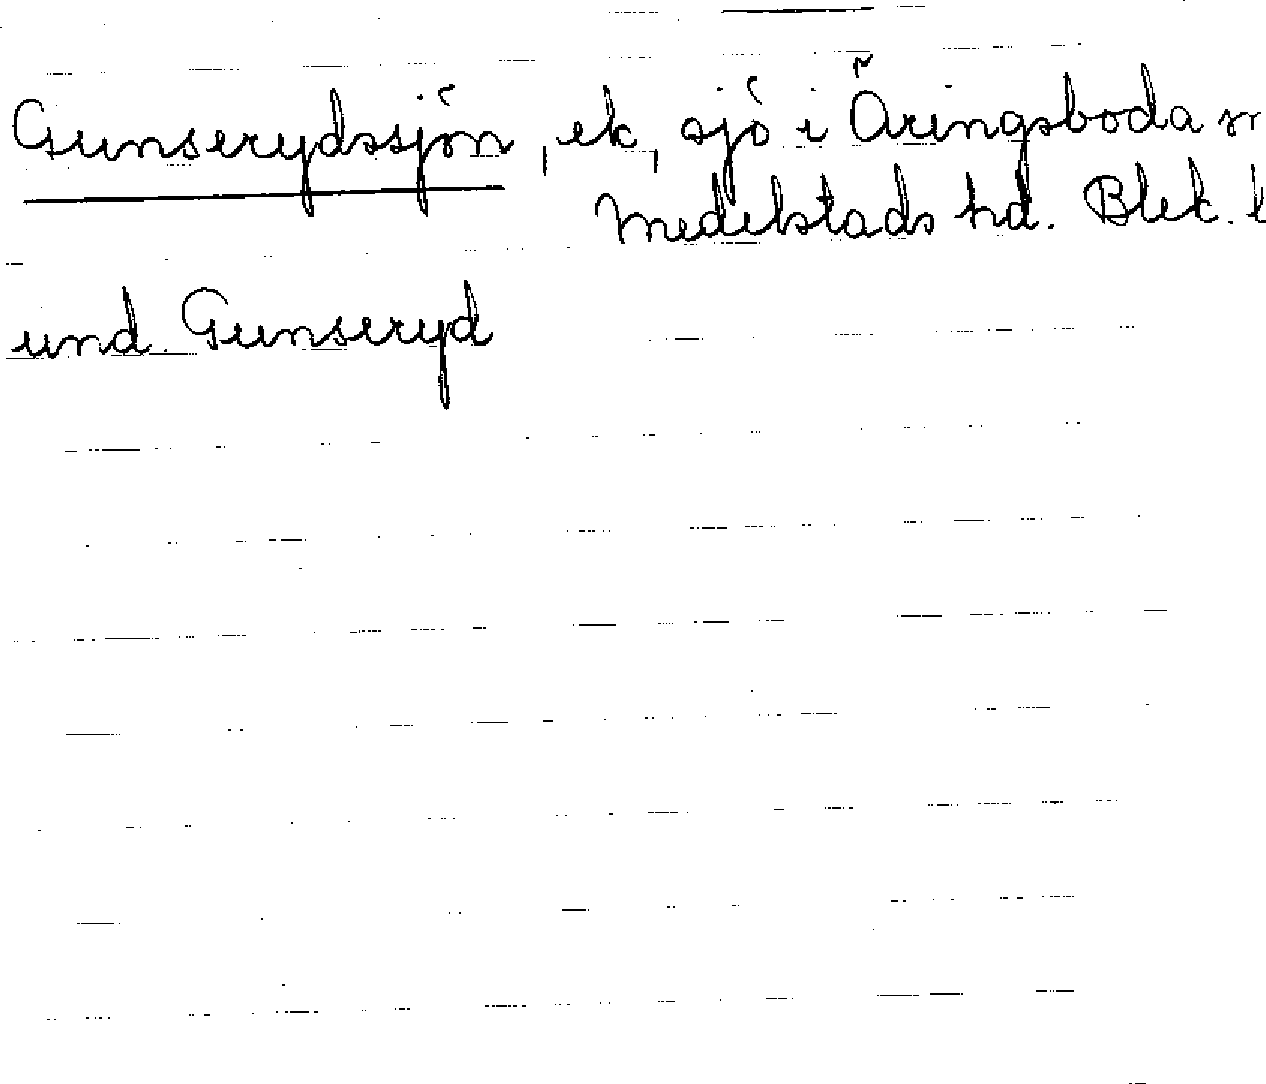 Gunserydssjön, ek, sjö i Öringsboda
Medelstads hd. Blek. l
und. Gunseryd